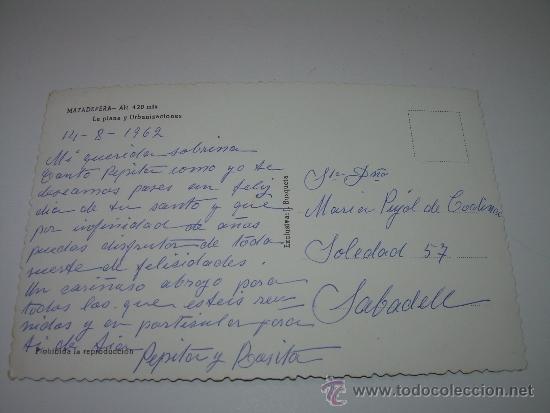 MATADEPERA - Alt. 420 mts.
La plana y Urbanizaciones
14-8-1962
Mi querida sobrina
tanto Pepita como yo te
deseamos pases un feliz
dia de tu santo y que
por infinidad de años
puedas disfrutar de toda
suerte de felicidades.
Un cariñoso abrazo para
todos los que esteis reu-
nidos y en particular para
ti de tias
Pepita y Rosita
Prohibida la reproducción
Exclusivas J. Busqueta
Sra Dña
Maria Pujol de Codina
Soledad 57
Sabadell
todocoleccion
www.todocoleccion.net